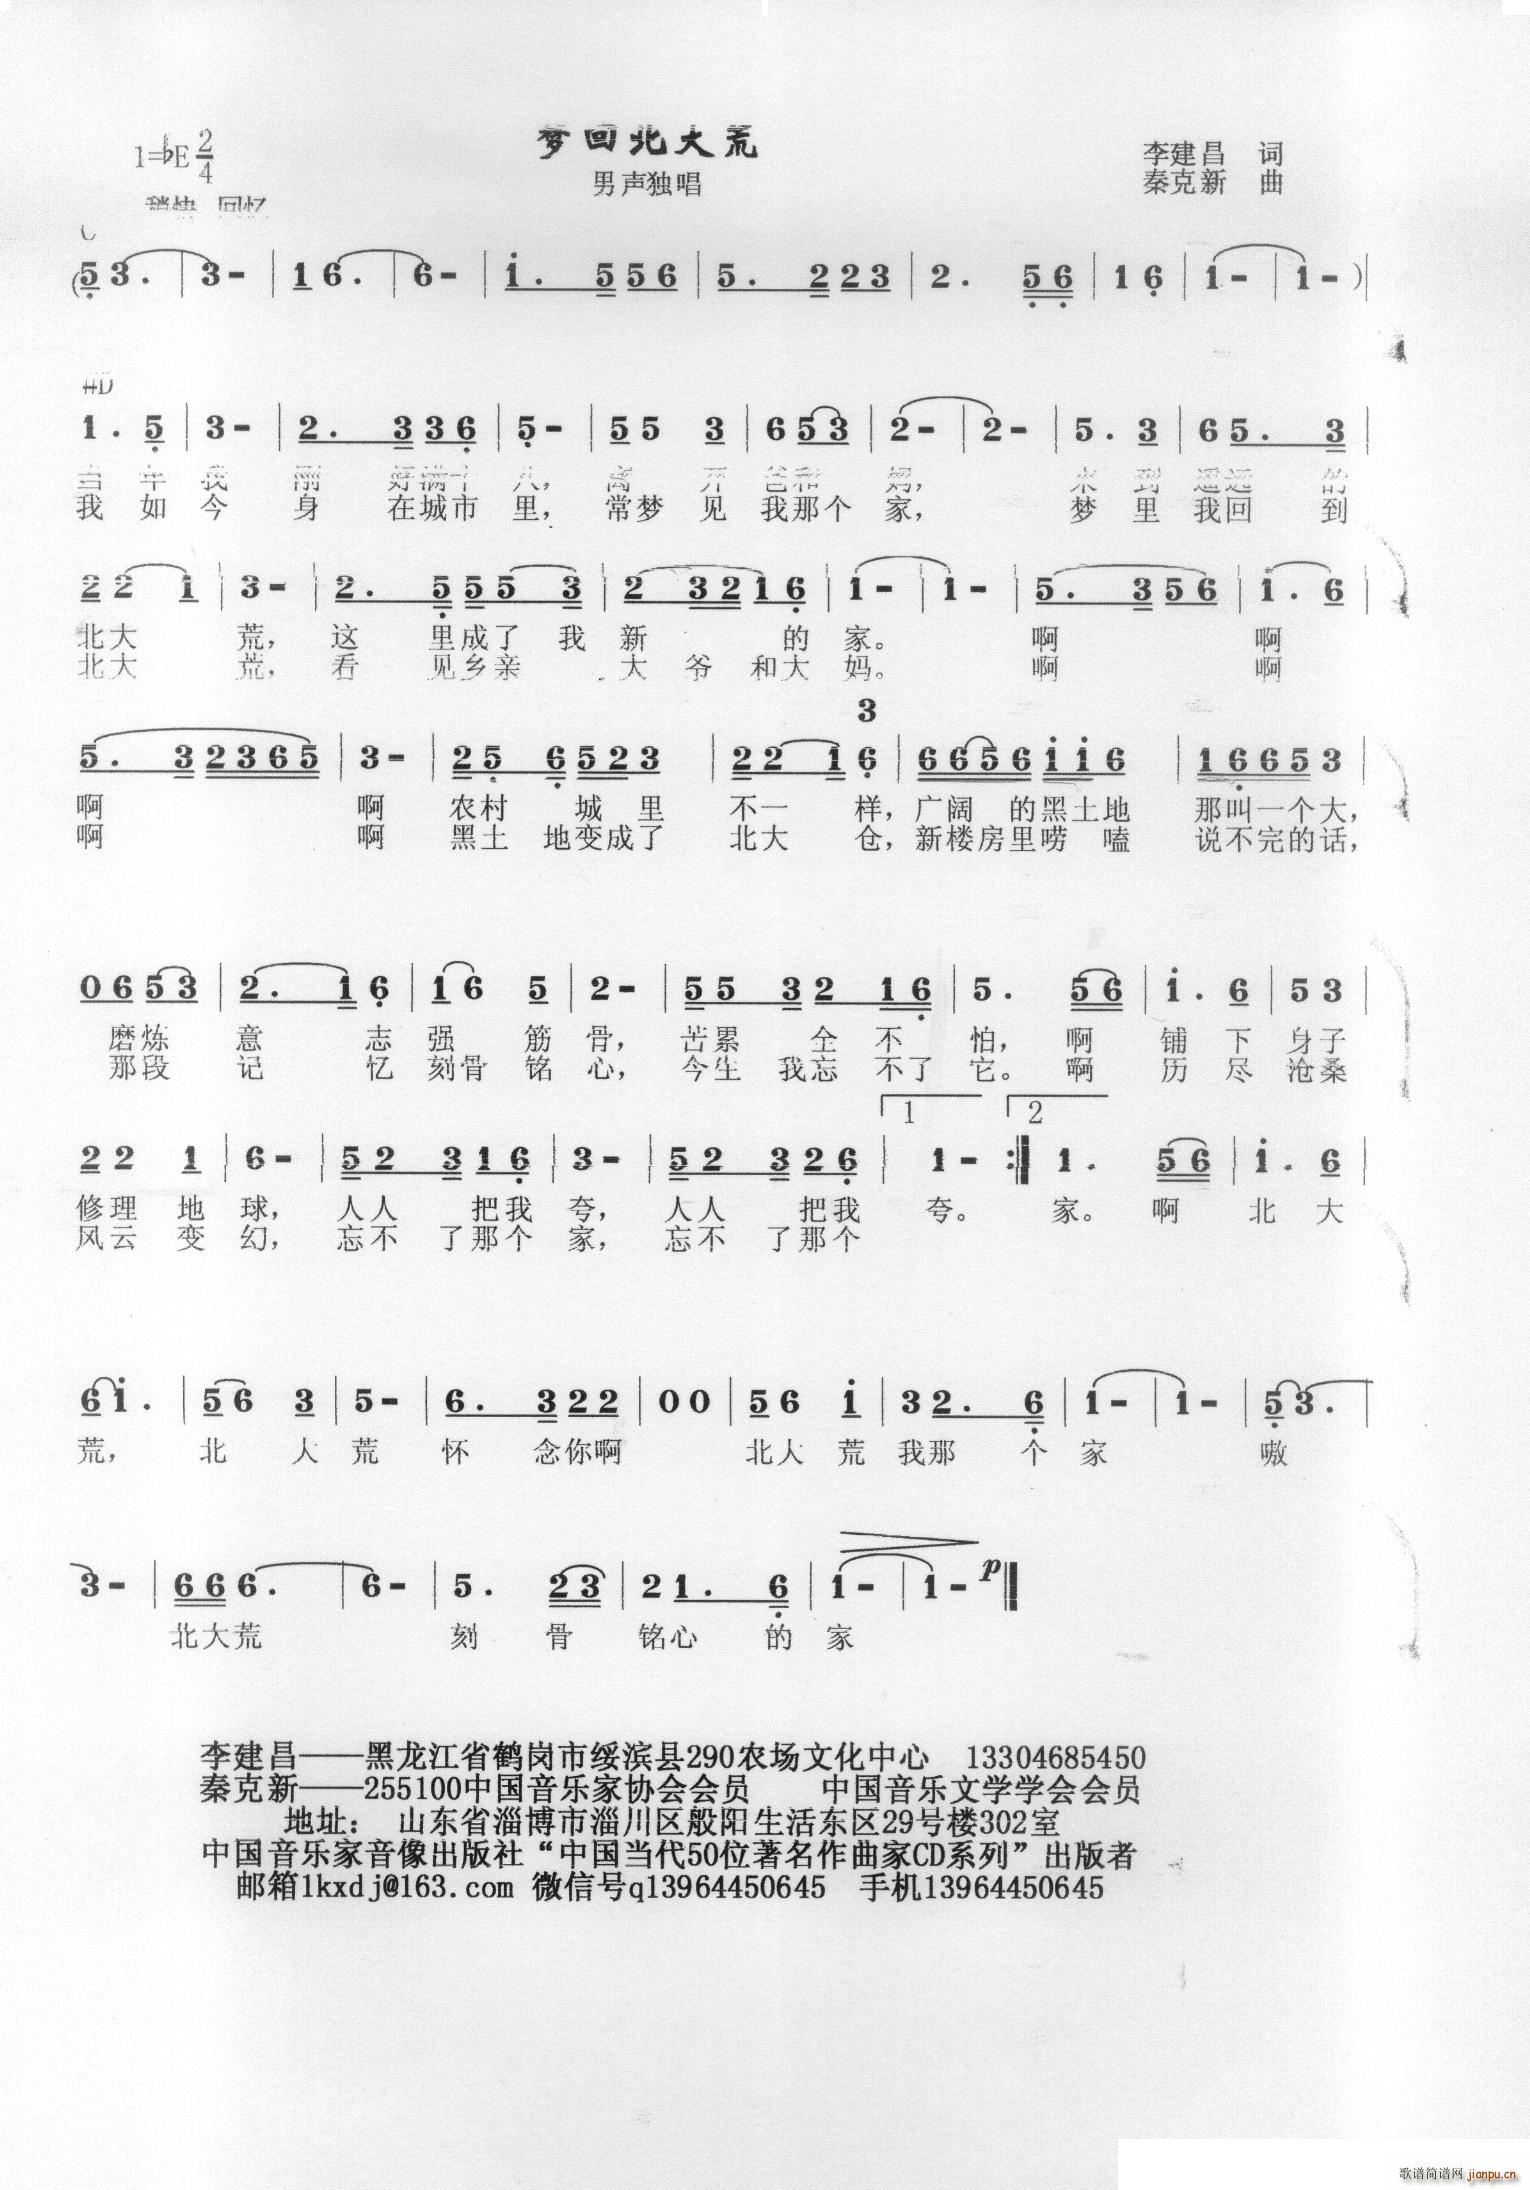 梦回北大荒
男声独唱
1=♭E 2/4
李建昌 词
秦克新 曲
稍快 回忆
(5 3. | 3 - | 1 6. | 6 - | 1. 5 5 6 | 5. 2 2 3 | 2. 5 6 | 1 6 | 1 - | 1 - )|
1. 5 | 3 - | 2. 3 3 6 | 5 - | 5 5 3 | 6 5 3 | 2 - | 2 - | 5. 3 | 6 5. 3 |
当年我刚好满十八，离开爸和妈，来到遥远的
我如今身在城市里，常梦见我那个家，梦里我回到
2 2 1 | 3 - | 2. 5 5 5 3 | 2 3 2 1 6 | 1 - | 1 - | 5. 3 5 6 | 1. 6 |
北大荒，这里成了我新的家。啊啊
北大荒，看见乡亲大爷和大妈。啊啊
3
5. 3 2 3 6 5 | 3 - | 2 5 6 5 2 3 | 2 2 1 6 | 6 6 5 6 1 1 6 | 1 6 6 5 3 |
啊啊农村城里不一样，广阔的黑土地那叫一个大，
啊啊黑土地变成了北大仓，新楼房里唠嗑说不完的话，
0 6 5 3 | 2. 1 6 | 1 6 5 | 2 - | 5 5 3 2 1 6 | 5. 5 6 | 1. 6 | 5 3 |
磨炼意志强筋骨，苦累全不怕，啊铺下身子
那段记忆刻骨铭心，今生我忘不了它。啊历尽沧桑
1 2
2 2 1 | 6 - | 5 2 3 1 6 | 3 - | 5 2 3 2 6 | 1 - :| 1. 5 6 | 1. 6 |
修理地球，人人把我夸，人人把我夸。家。啊北大
风云变幻，忘不了那个家，忘不了那个
6 1. | 5 6 3 | 5 - | 6. 3 2 2 | 0 0 | 5 6 1 | 3 2. 6 | 1 - | 1 - | 5 3. |
荒，北大荒怀念你啊北大荒我那个家嗷
3 - | 6 6 6. | 6 - | 5. 2 3 | 2 1. 6 | 1 - | 1 - p |
北大荒刻骨铭心的家
李建昌——黑龙江省鹤岗市绥滨县290农场文化中心 13304685450
秦克新——255100中国音乐家协会会员 中国音乐文学学会会员
地址： 山东省淄博市淄川区般阳生活东区29号楼302室
中国音乐家音像出版社“中国当代50位著名作曲家CD系列”出版者
邮箱lkxdj@163.com 微信号q13964450645 手机13964450645
歌谱简谱网 jianpu.cn